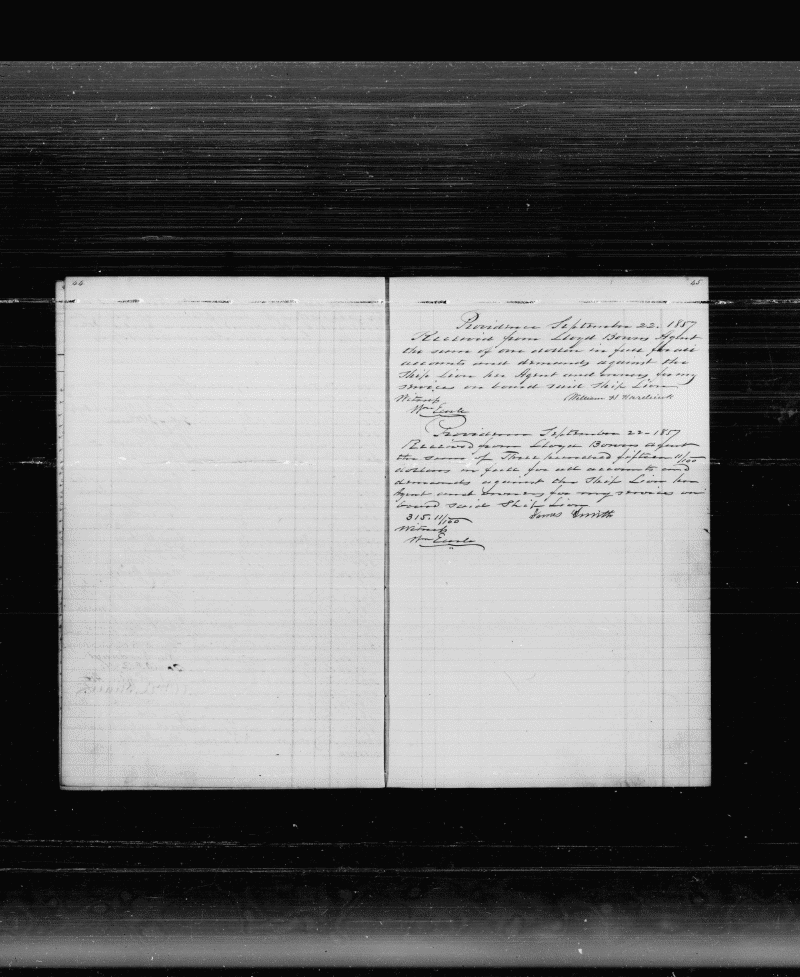 44
45
Providence September 22. 1857
Received from Lloyd Bowers Agent
the sum of one dollar in full for all
accounts and demands against the
Ship Lion her Agent and owners for my
services on board said Ship Lion
Witness William H
Wm Earle
Providence September 22- 1857
Received from Lloyd Bowers Agent
the sum of Three hundred fifteen 11/100
dollars in full for all accounts and
demands against the Ship Lion her
Agent and owners for my services on
board said Ship Lion
315.11/100 James Smith
Witness
Wm Earle